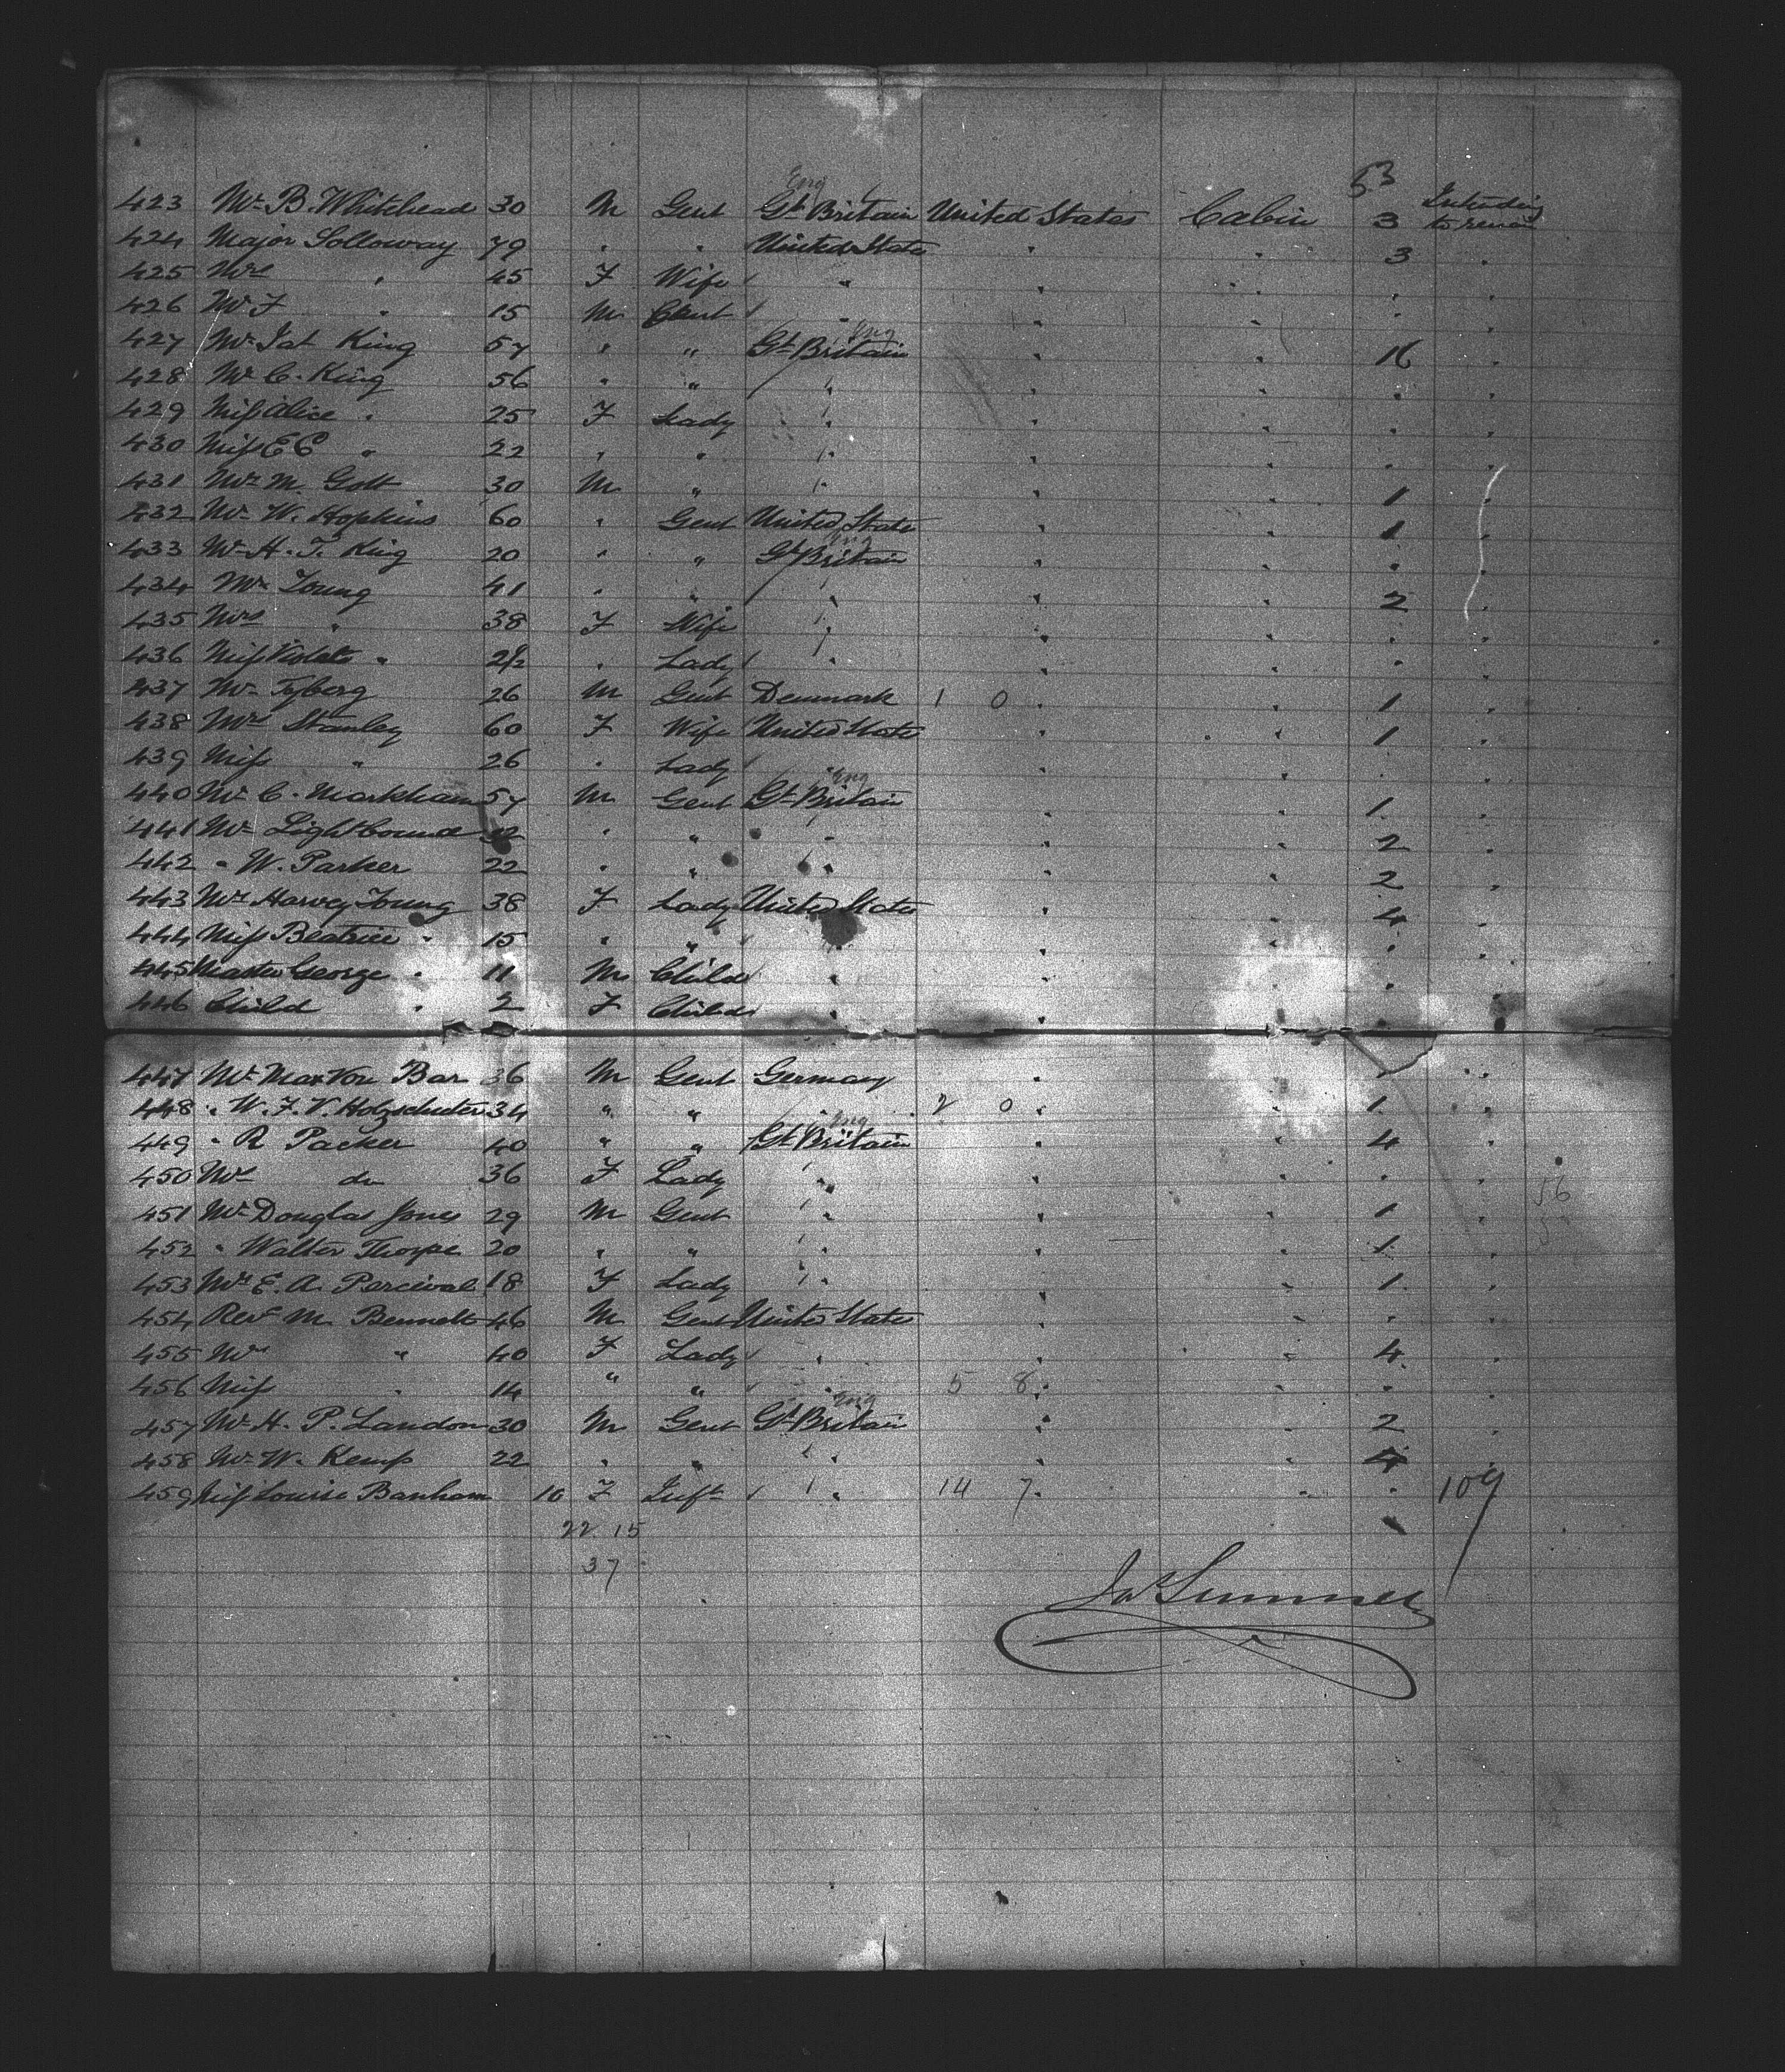 53
Eng
423 Mr B. Whitehead 30 M Gent Gt Britain United States Cabin 3 Intending to remain
424 Major Solloway 79 " " United States " " 3 "
425 Mrs " 45 F Wife " " " " "
426 Mr F " 15 M Gent " " " " "
Eng
427 Mr Jas King 57 " " Gt Britain " " 16 "
428 Mr C. King 56 " " " " " " "
429 Miss Alice " 25 F Lady " " " " "
430 Miss E C " 22 " " " " " " "
431 Mr M. Gott 30 M " " " " 1 "
432 Mr W. Hopkins 60 " Gent United States " " 1 "
Eng
433 Mr H. T. King 20 " " Gt Britain " " " "
434 Mr Young 41 " " " " " 2 "
435 Mrs " 38 F Wife " " " " "
436 Miss Violet " 2½ " Lady " " " " "
437 Mr Tyberg 26 M Gent Denmark 1 0 " " 1 "
438 Mrs Stanley 60 F Wife United States " " 1 "
439 Miss " 26 " Lady " " " " "
Eng
440 Mr C. Markham 57 M Gent Gt Britain " " 1 "
441 Mr Lightbound " " " " " 2 "
442 " W. Parker 22 " " " " " 2 "
443 Mrs Harvey Young 38 F Lady United States " " 4 "
444 Miss Beatrice " 15 " " " " " " "
445 Master George " 11 M Child " " " " "
446 Child " 2 F Child " " " "
447 Mr Max Von Bar 36 M Gent Germany " " 1 "
448 " W. F. V. Holzschuter 34 " " " 2 0 " " 1 "
Eng
449 " R Packer 40 " " Gt Britain " " 4 "
450 Mrs do 36 F Lady " " " " "
451 Mr Douglas Jones 29 M Gent " " " 1 " 56
452 " Walter Thorpe 20 " " " " " 1 "
453 Mrs E. A. Percival 18 F Lady " " " 1 "
454 Revd M. Bennett 46 M Gent United States " " " "
455 Mrs " 40 F Lady " " " 4 "
456 Miss " 14 " " " 5 8 " " " "
Eng
457 Mr H. P. Landon 30 M Gent Gt Britain " " 2 "
458 Mr W. Kemp 22 " " " " " 4 "
459 Miss Louise Banham 10 F Inft " 14 7 " " " 109
22 15
37